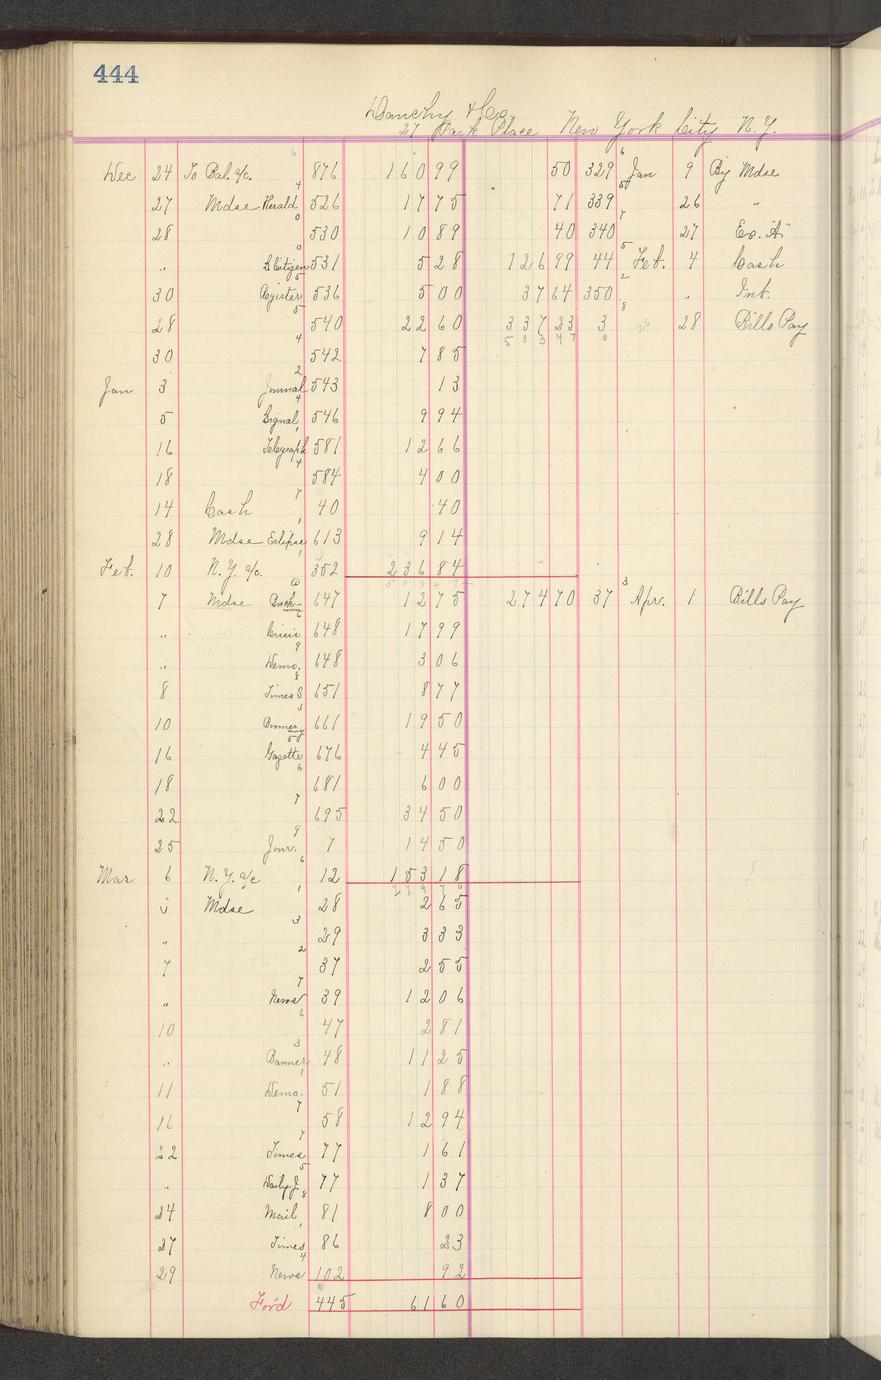 444
Danchy & Co.
27 Park Place New York City N.Y.
Dec 24 To Bal. a/c. 876 160 99 50 329 Jan 9 By Mdse
27 Mdse Herald 526 17 75 71 339 26 "
28 530 10 89 40 340 27 Ex. "A"
" B Citizen 531 5 28 126 99 44 Feb. 4 Cash
30 Register 536 5 00 37 64 350 " Int.
28 540 22 60 337 23 3 28 Bills Pay
503 47
30 542 7 85
Jan 3 Journal 543 13
5 Signal 546 9 94
16 Telegraph 581 12 66
18 584 4 00
14 Cash 40 40
28 Mdse Eclipse 613 9 14
Feb. 10 N.Y. a/c. 352 236 84
7 Mdse 647 12 75 274 70 37 Apr. 1 Bills Pay
" Crisis 648 17 99
" Demo. 648 3 06
8 Times S 651 8 77
10 661 19 50
16 Gazette 676 4 45
18 681 6 00
22 695 34 50
25 Jour. 7 14 50
Mar 6 N.Y. a/c 12 153 18
" Mdse 28 2 65
" 29 3 33
7 37 2 55
" News 39 12 06
10 47 2 81
" Banner 48 11 25
11 Demo. 51 1 88
16 58 12 94
22 Times 77 1 61
" Daily J. 77 1 37
24 Mail 81 8 00
27 Times 86 23
29 News 102 92
For'd 445 61 60